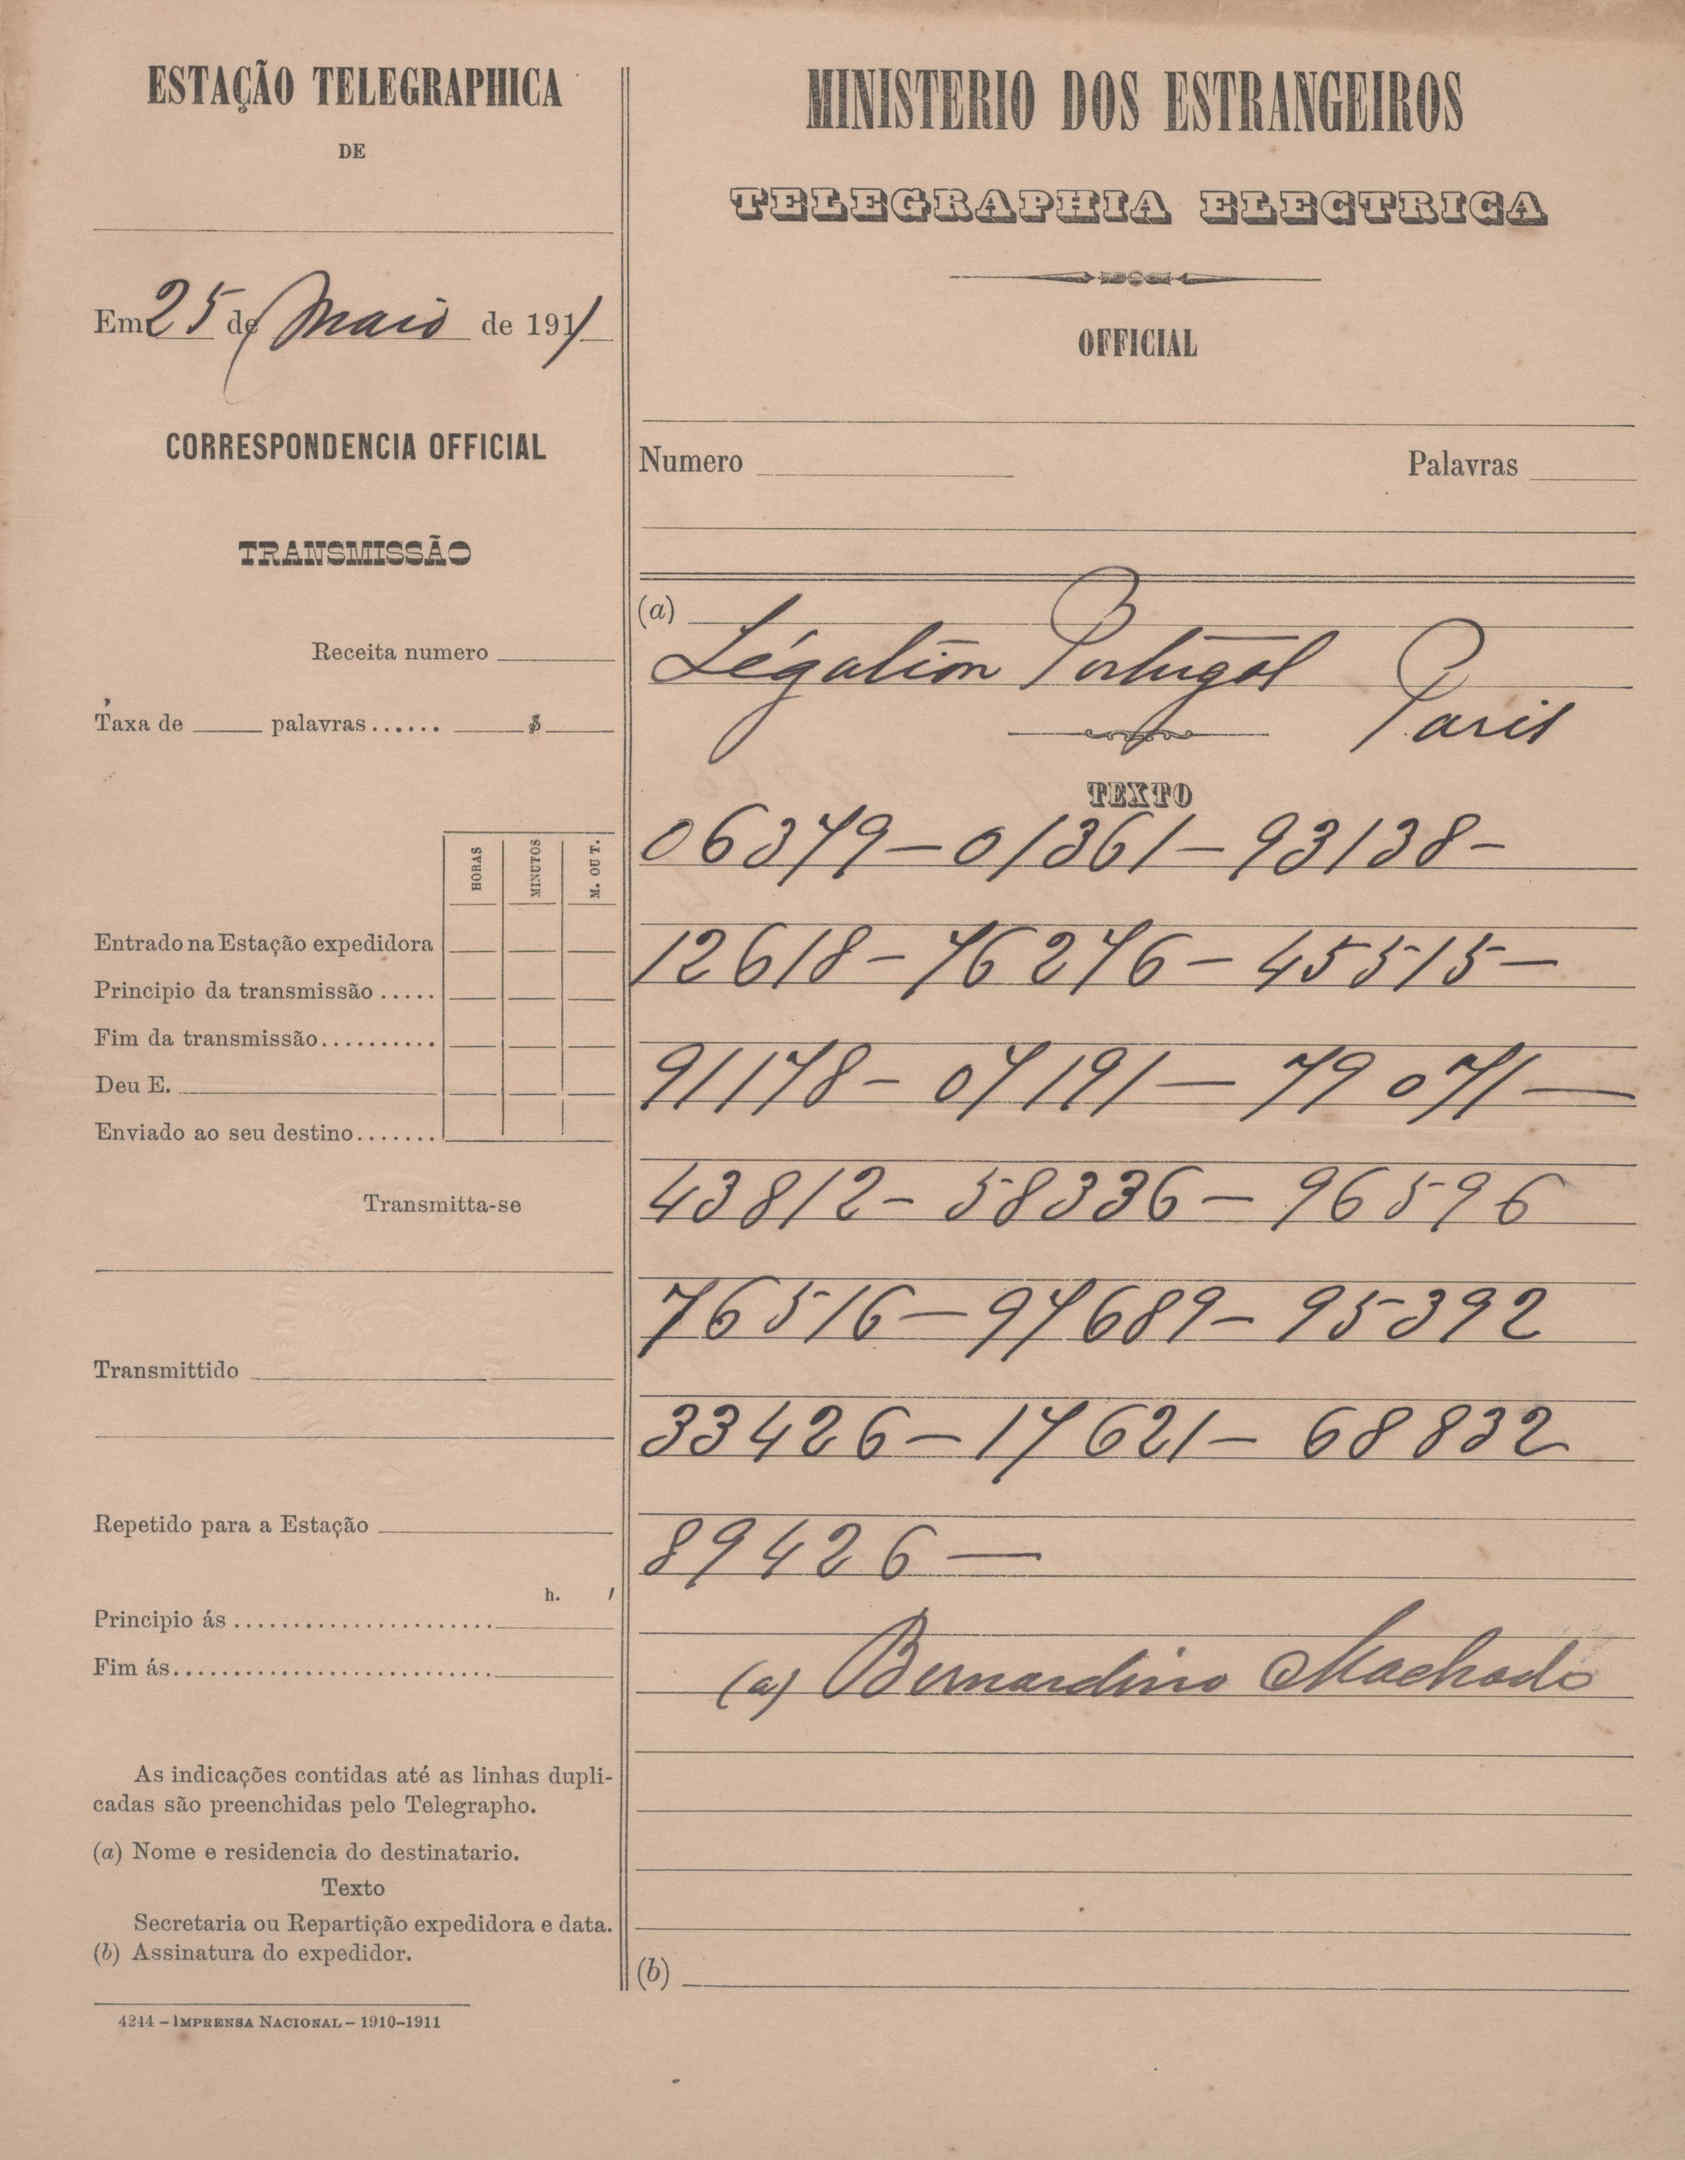 ESTAÇÃO TELEGRAPHICA
DE
Em 25 de Maio de 1911
CORRESPONDENCIA OFFICIAL
TRANSMISSÃO
Receita numero
Taxa de palavras...... $
HORAS
MINUTOS
M. OU T.
Entrado na Estação expedidora
Principio da transmissão.....
Fim da transmissão..........
Deu E.
Enviado ao seu destino.......
Transmitta-se
Transmittido
Repetido para a Estação
h. '
Principio ás......................
Fim ás...........................
As indicações contidas até as linhas dupli-
cadas são preenchidas pelo Telegrapho.
(a) Nome e residencia do destinatario.
Texto
Secretaria ou Repartição expedidora e data.
(b) Assinatura do expedidor.
4244 – IMPRENSA NACIONAL – 1910–1911
MINISTERIO DOS ESTRANGEIROS
TELEGRAPHIA ELECTRICA
OFFICIAL
Numero Palavras
(a)
Légation Portugal Paris
TEXTO
06379 – 01361 – 93138 –
12618 – 76276 – 45515 –
91178 – 07191 – 79071 –
43812 – 58336 – 96596
76516 – 97689 – 95392
33426 – 17621 – 68832
89426 –
(a) Bernardino Machado
(b)